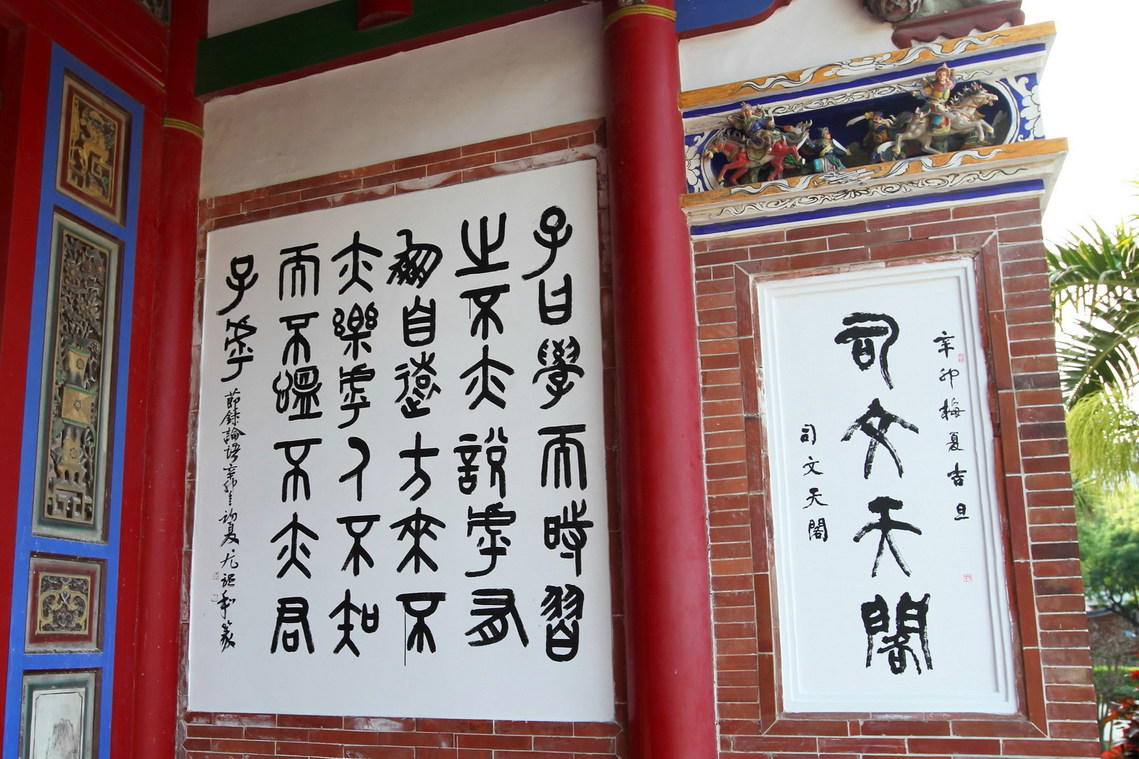 辛卯梅夏吉旦
司文天閣
司文天閣
子曰學而時習
之不亦說乎有
朋自遠方來不
亦樂乎人不知
而不慍不亦君
子乎
節錄論語 初夏 篆